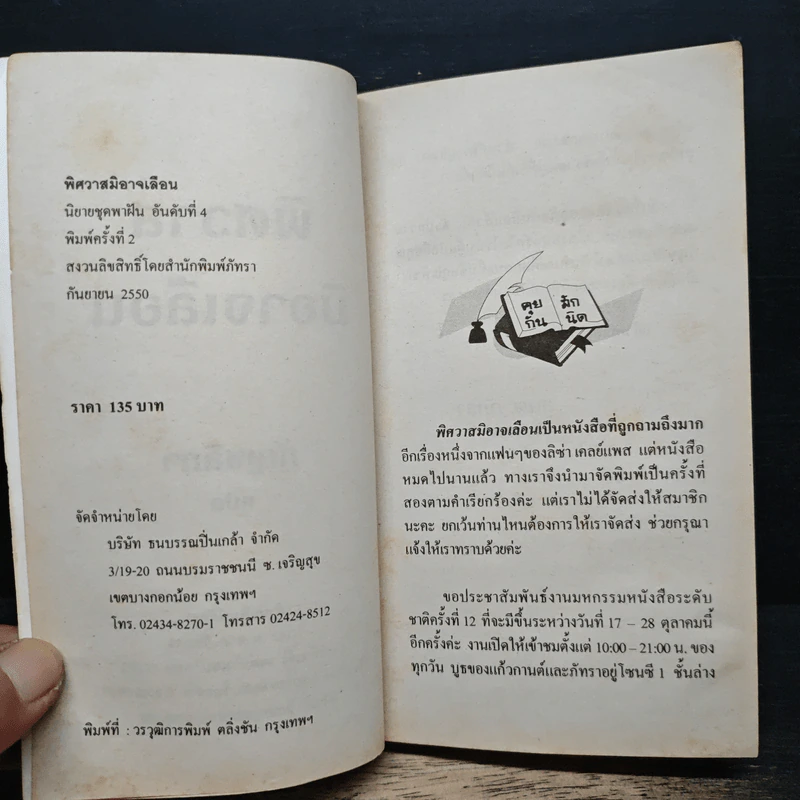 พิศวาสมิอาจเลือน
นิยายชุดพาฝัน อันดับที่ 4
พิมพ์ครั้งที่ 2
สงวนลิขสิทธิ์โดยสำนักพิมพ์ภัทรา
กันยายน 2550
ราคา 135 บาท
จัดจำหน่ายโดย
บริษัท ธนบรรณปิ่นเกล้า จำกัด
3/19-20 ถนนบรมราชชนนี ซ. เจริญสุข
เขตบางกอกน้อย กรุงเทพฯ
โทร. 02434-8270-1 โทรสาร 02424-8512
พิมพ์ที่ : วรวุฒิการพิมพ์ ตลิ่งชัน กรุงเทพฯ
คุย สัก
กัน นิด
พิศวาสมิอาจเลือนเป็นหนังสือที่ถูกถามถึงมาก
อีกเรื่องหนึ่งจากแฟนๆของลิซ่า เคลย์แพส แต่หนังสือ
หมดไปนานแล้ว ทางเราจึงนำมาจัดพิมพ์เป็นครั้งที่
สองตามคำเรียกร้องค่ะ แต่เราไม่ได้จัดส่งให้สมาชิก
นะคะ ยกเว้นท่านไหนต้องการให้เราจัดส่ง ช่วยกรุณา
แจ้งให้เราทราบด้วยค่ะ
ขอประชาสัมพันธ์งานมหกรรมหนังสือระดับ
ชาติครั้งที่ 12 ที่จะมีขึ้นระหว่างวันที่ 17 – 28 ตุลาคมนี้
อีกครั้งค่ะ งานเปิดให้เข้าชมตั้งแต่ 10:00 – 21:00 น. ของ
ทุกวัน บูธของแก้วกานต์และภัทราอยู่โซนซี 1 ชั้นล่าง